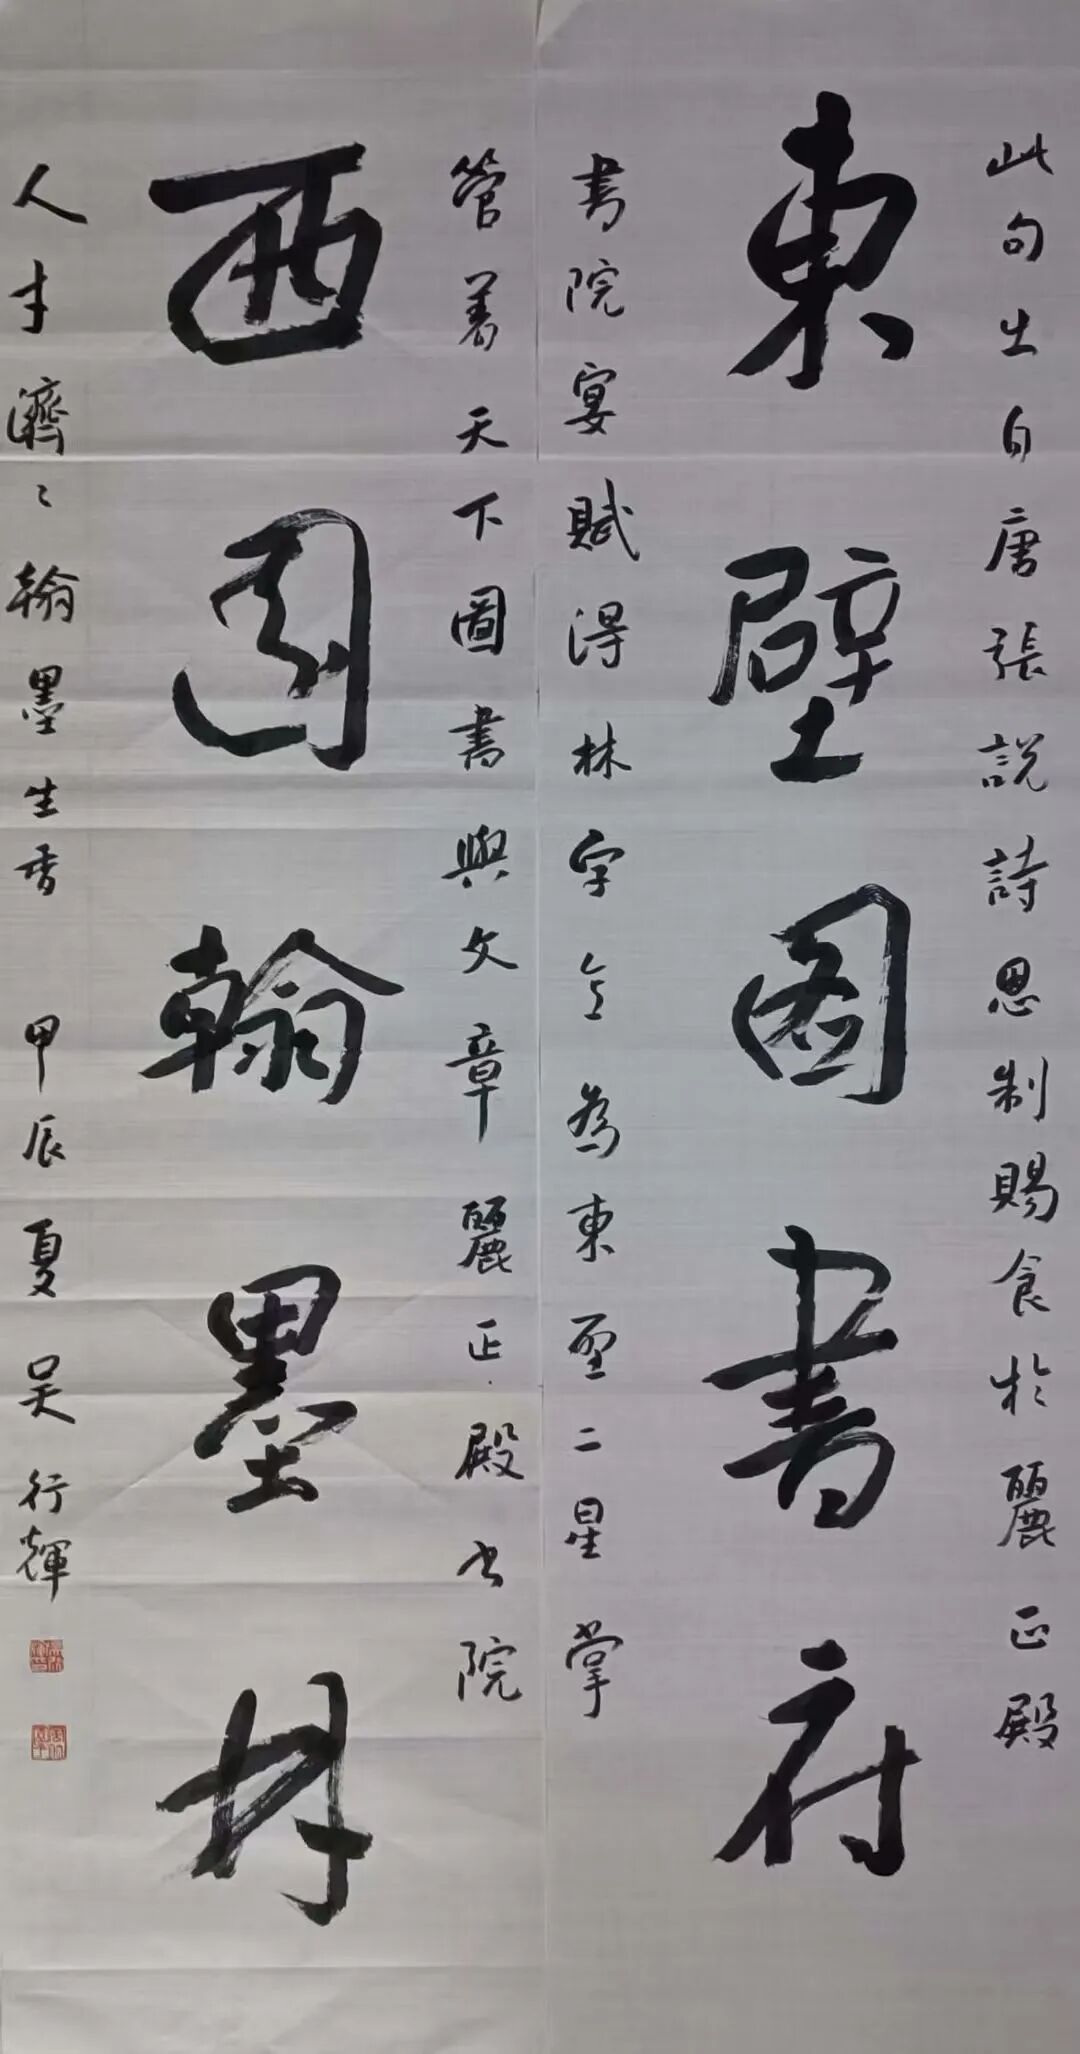 東壁圖書府
此句出自唐張說詩恩制賜食於麗正殿
書院宴賦得林字意為東壁二星掌
西園翰墨林
管着天下圖書與文章麗正殿書院
人才濟々翰墨生香 甲辰夏吴行輝